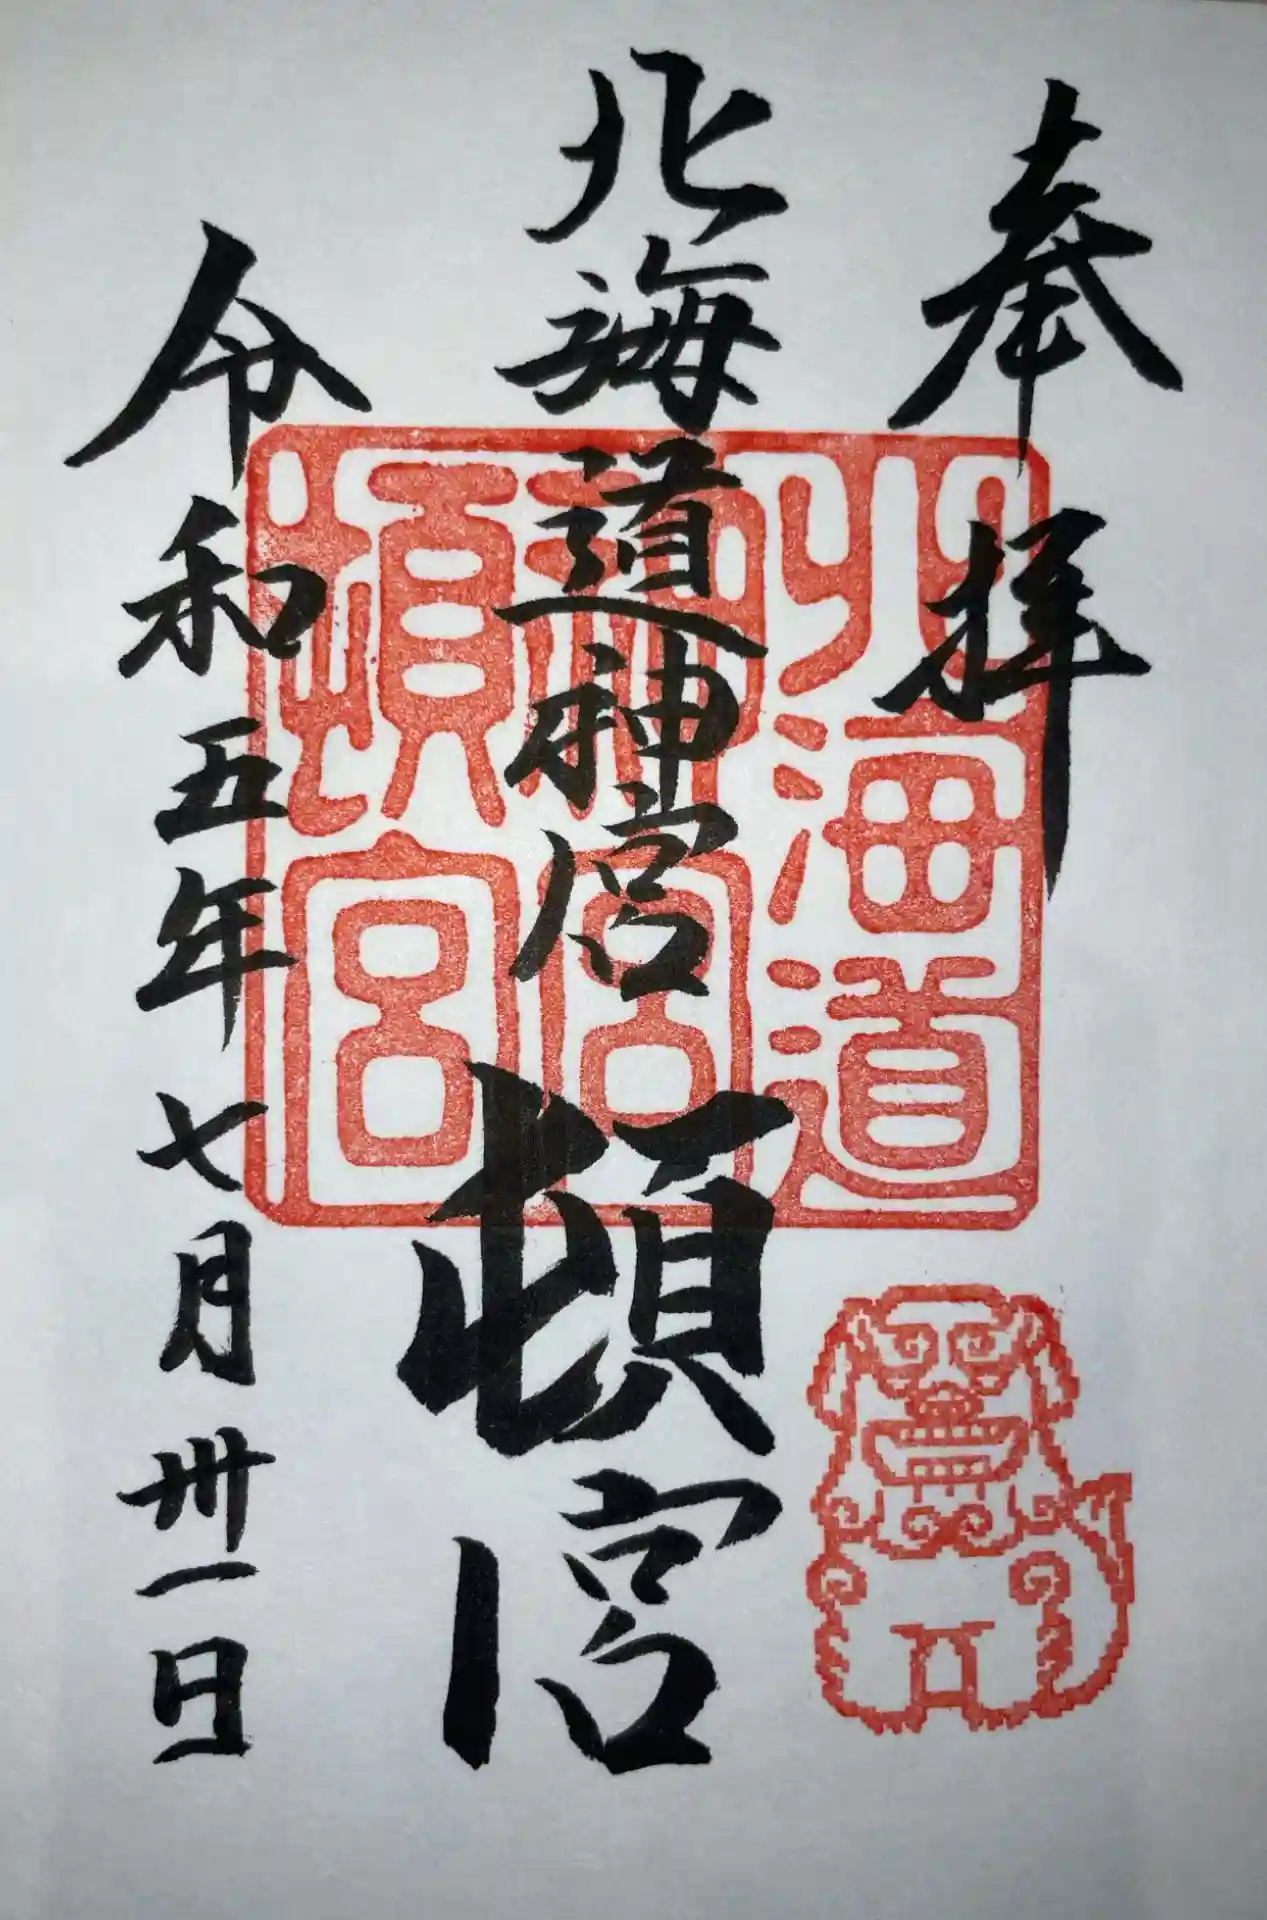 奉拝
北海道神宮頓宮
令和五年七月卅一日
北海道
神宮
頓宮